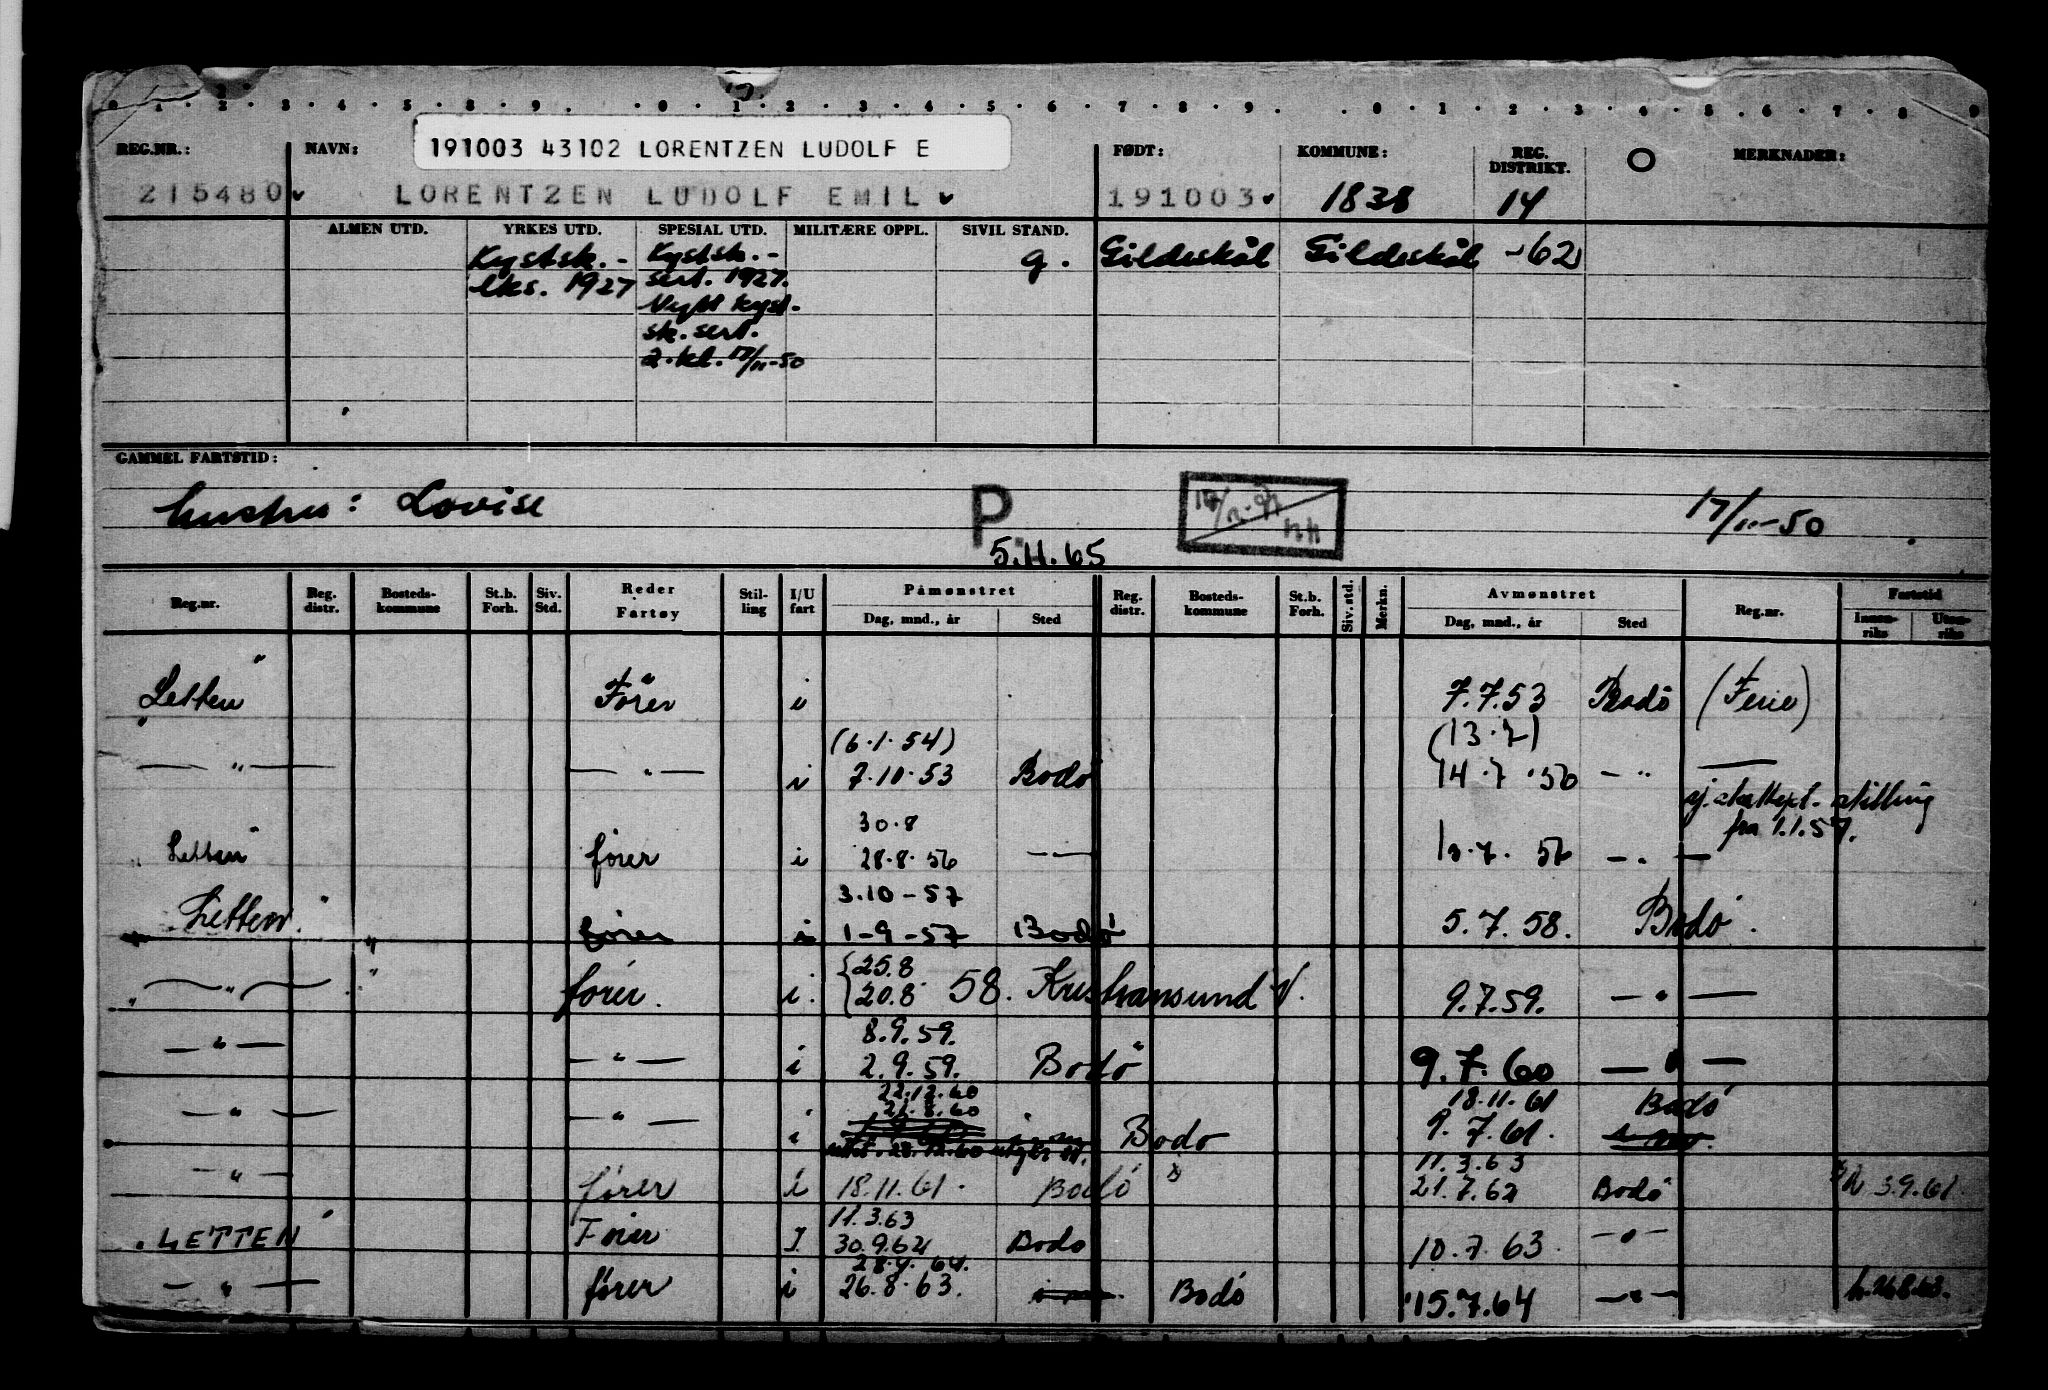 0 1 2 3 4 5 6 7 8 9 0 1 2 3 4 5 6 7 8 9 0 1 2 3 4 5 6 7 8 9
191003 43102 LORENTZEN LUDOLF E
REG.NR.: NAVN: FØDT: KOMMUNE: REG. DISTRIKT. O MERKNADER:
215480 LORENTZEN LUDOLF EMIL 191003 1838 14
ALMEN UTD. YRKES UTD. SPESIAL UTD. MILITÆRE OPPL. SIVIL STAND.
Kystsk.- Kystsk.- g. Gildeskål Gildeskål -62
eks. 1927 sert. 1927.
Nytt kyst.
sk. sert.
2. kl. 17/11-50
GAMMEL FARTSTID:
hustru: Lovise P 17/11-50
5.11.65
Reg.nr. Reg. distr. Bosteds-kommune St.b. Forh. Siv. Std. Reder Fartøy Stil-ling I/U fart Påmønstret Reg. distr. Bosteds-kommune St.b. Forh. Siv. std. Merkn. Avmønstret Reg.nr. Fartstid
Dag, mnd., år Sted Dag, mnd., år Sted Innen-riks Uten-riks
"Letten" Fører i 7.7.53 Bodö (Ferie)
(6.1.54) (13.7)
— " — — " — i 7.10.53 Bodö 14.7.56 — " —
ej. stilling
fra 1.1.57.
30.8
"Letten" fører i 28.8.56 — — 13.7. 56 — " —
3.10-57
"Letten" fører i 1-9-57 Bodö 5.7.58. Bodö.
25.8
— " — fører. i. 20.8 58. Kristiansund N. 9.7.59. — " —
8.9.59.
— " — — " — i 2.9.59. Bodö 9.7.60 — " —
22.12.60
21.8.60 18.11.61 Bodö
— " — — " — i Bodö 9.7.61.
11.3.63
— " — fører i 18.11.61. Bodö x 21.7.62 Bodö 3.9.61.
11.3.63
"LETTEN" Fører I 30.9.62 Bodø 10.7.63 — " —
28.4.64.
— " — fører i 26.8.63. Bodö 15.7.64 — " — h.26.8.63.